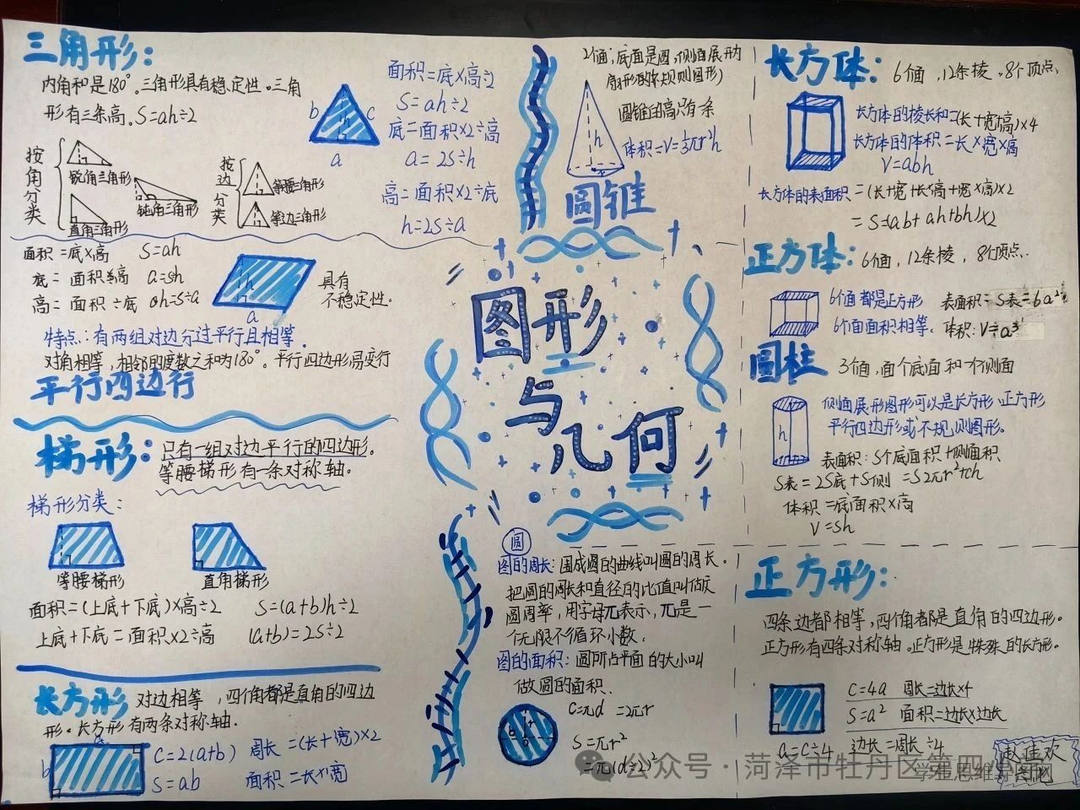 三角形：
内角和是180°。三角形具有稳定性。三角
形有三条高。S=ah÷2
按角分类
锐角三角形
钝角三角形
直角三角形
按边分类
等腰三角形
等边三角形
b
c
h
a
面积=底×高÷2
S=ah÷2
底=面积×2÷高
a=2S÷h
高=面积×2÷底
h=2S÷a
面积=底×高 S=ah
底=面积÷高 a=sh
高=面积÷底 h=S÷a
h
a
具有
不稳定性。
特点：有两组对边分过平行且相等。
对角相等，相邻的度数之和为180°。平行四边形易变行
平行四边行
梯形：
只有一组对边平行的四边形。
等腰梯形有一条对称轴。
梯形分类：
等腰梯形
直角梯形
面积=(上底+下底)×高÷2 S=(a+b)h÷2
上底+下底=面积×2÷高 (a+b)=2S÷2
长方形 对边相等，四个角都是直角的四边
形。长方形有两条对称轴。
a
b
C=2(a+b) 周长=(长+宽)×2
S=ab 面积=长×宽
2个面；底面是圆，侧面展形为
扇形的不规则图形)
圆锥的高只有一条
体积=V=⅓πr²h
h
圆锥
图形
与
几何
圆
图的周长：围成圆的曲线叫圆的周长。
把圆的周长和直径的比值叫做
圆周率，用字母π表示，π是一
个无限不循环小数。
图的面积：圆所占平面的大小叫
做圆的面积.
C=πd =2πr
S=πr²
=π(d÷2)²
长方体：6个面，12条棱，8个顶点，
长方体的棱长和=(长+宽+高)×4
长方体的体积=长×宽×高
V=abh
长方体的表面积=(长+宽+长+高+宽×高)×2
=S=(ab+ah+bh)×2
正方体：6个面，12条棱，8个顶点..
6个面都是正方形
6个面面积相等.
表面积=S表=6a²
体积:V=a³
圆柱 3个面，面个底面和一个侧面
h
侧面展形图形可以是长方形、正方形
平行四边形或不规则图形。
表面积：S个底面积+侧面积
S表=2S底+S侧=S2πr²+ch
体积=底面积×高
V=Sh
正方形：
四条边都相等，四个角都是直角的四边形。
正方形有四条对称轴。正方形是特殊的长方形。
C=4a 周长=边长×4
S=a² 面积=边长×边长
a=C÷4 边长=周长÷4
公众号·菏泽市牡丹区第四小学